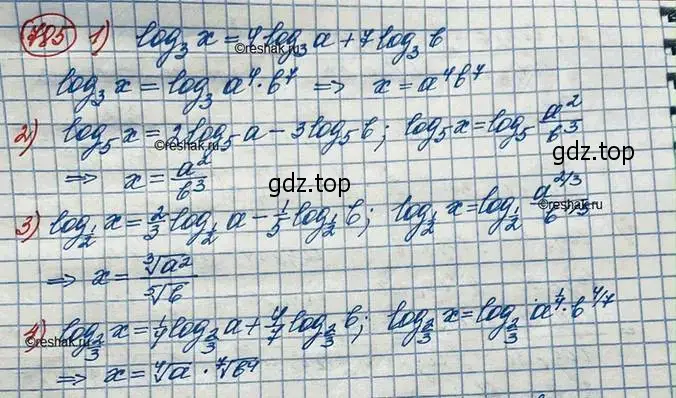 785 1) log₃ x = 4 log₃ a + 7 log₃ b
©reshak.ru
log₃ x = log₃ a⁴ · b⁷ ⇒ x = a⁴b⁷
2) log₅ x = 2 log₅ a − 3 log₅ b; log₅ x = log₅ a²/b³
©reshak.ru
⇒ x = a²/b³
gdz.top
gdz.top
3) log_{1/2} x = 2/3 log_{1/2} a − 1/5 log_{1/2} b; log_{1/2} x = log_{1/2} a^{2/3}/b^{1/5}
©reshak.ru
⇒ x = ∛a²/⁵√b
4) log_{2/3} x = 1/4 log_{2/3} a + 4/7 log_{2/3} b; log_{2/3} x = log_{2/3} a^{1/4} · b^{4/7}
©reshak.ru
©reshak.ru
⇒ x = ⁴√a · ⁷√b⁴
gdz.top